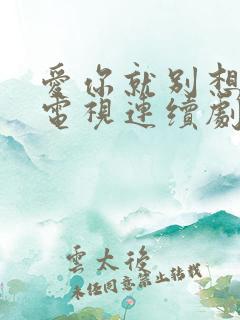 愛你就別想
電視連續劇
雲太後
未經同意禁止轉載